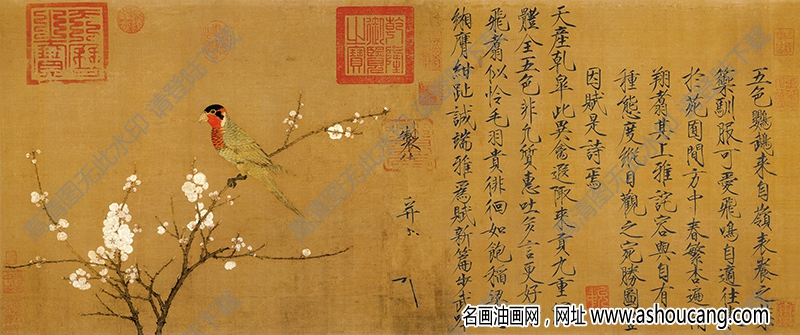 五色鸚鵡來自嶺表養之
籞馴服可愛飛鳴自適往
於苑囿間方中春繁杏遍
翔翥其上雅詫容與自有
種態度縱目觀之宛勝圖
因賦是詩焉
天產乾皋此異禽遐陬來貢九重
體全五色非凡質惠吐多言更好
飛翥似憐毛羽貴徘徊如飽稻粱
緗膺紺趾誠端雅為賦新篇步武
製
并
乾隆御覽之寶
名画油画网，网址 www.ashoucang.com